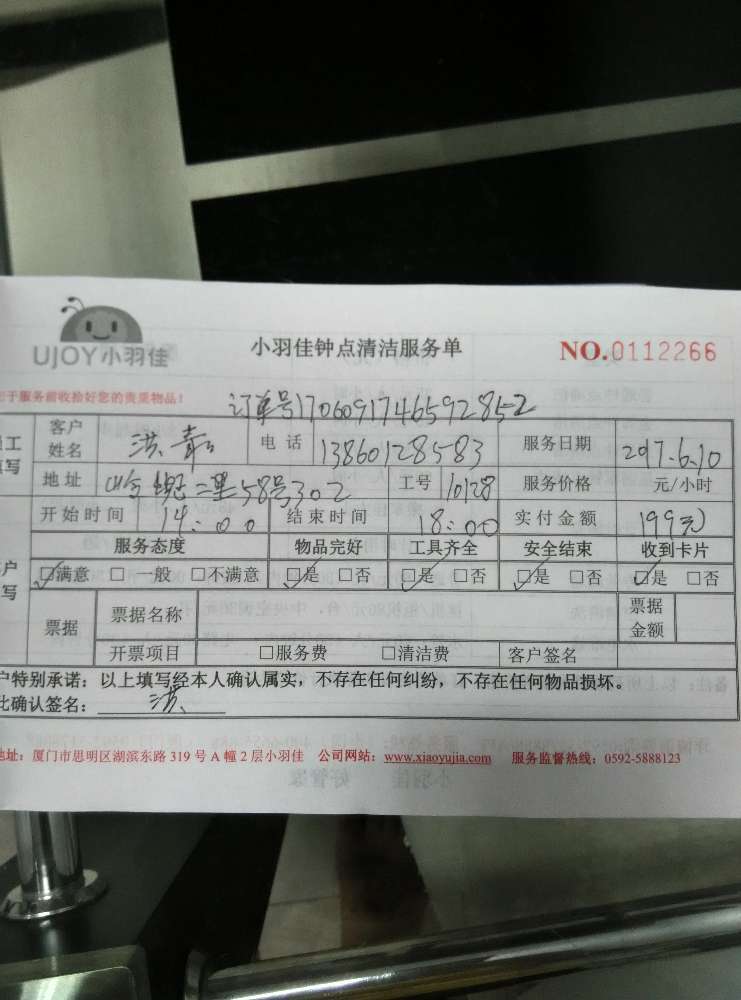 UJOY小羽佳
小羽佳钟点清洁服务单
NO.0112266
于服务前收拾好您的贵重物品!
订单号1706091746592852
工 填写
客户姓名 洪 电话 13860128583 服务日期 2017.6.10
地址 二里58号302 工号 10128 服务价格 元/小时
开始时间 14:00 结束时间 18:00 实付金额 199元
户 写
服务态度 物品完好 工具齐全 安全结束 收到卡片
☑满意 □一般 □不满意 ☑是 □否 ☑是 □否 ☑是 □否 ☑是 □否
票据 票据名称 票据金额
开票项目 □服务费 □清洁费 客户签名
户特别承诺:以上填写经本人确认属实,不存在任何纠纷,不存在任何物品损坏。
此确认签名: 洪
地址:厦门市思明区湖滨东路 319 号 A 幢 2 层小羽佳 公司网站:www.xiaoyujia.com 服务监督热线:0592-5888123